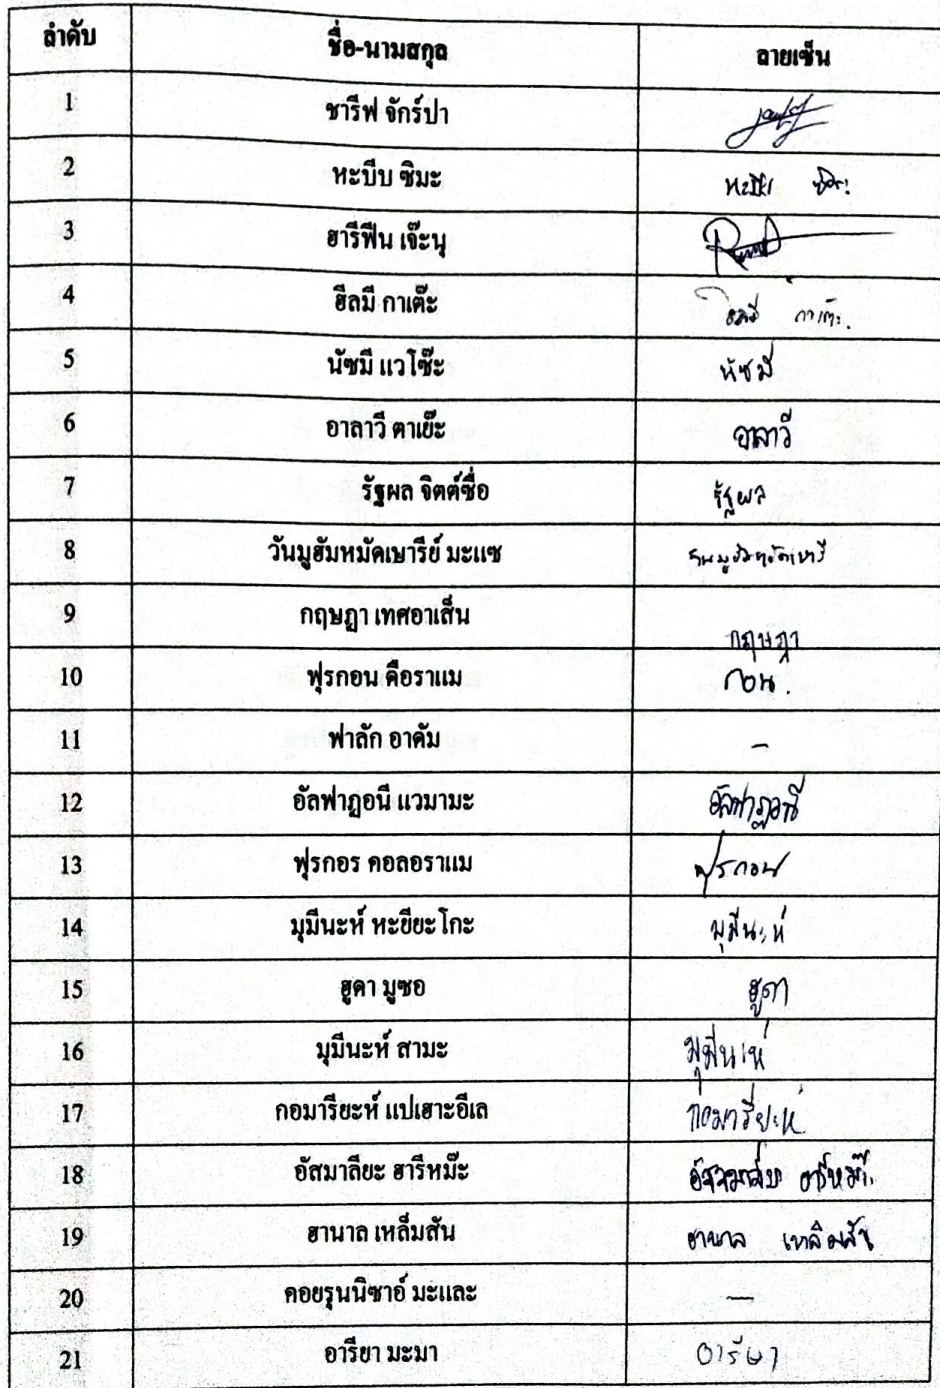 ลำดับ ชื่อ-นามสกุล ลายเซ็น
1 ชารีฟ จักร์ปา
2 หะบีบ ซิมะ หะบีบ ซิมะ
3 ฮารีฟีน เจ๊ะนุ
4 ฮีลมี กาเต๊ะ ฮีลมี กาเต๊ะ
5 นัซมี แวโซ๊ะ นัซมี
6 อาลาวี ตาเย๊ะ อาลาวี
7 รัฐผล จิตต์ซื่อ รัฐผล
8 วันมูฮัมหมัดเษารีย์ มะแซ
9 กฤษฎา เทศอาเส็น กฤษฎา
10 ฟุรกอน ดือราแม กอน.
11 ฟาลัก อาดัม -
12 อัลฟาฏอนี แวมามะ อัลฟาฏอนี
13 ฟุรกอร คอลอราแม ฟุรกอน
14 มุมีนะห์ หะยียะโกะ มุมีนะห์
15 ฮูดา มูซอ ฮูดา
16 มุมีนะห์ สามะ มุมีนะห์
17 กอมารียะห์ แปเฮาะอีเล กอมารียะห์
18 อัสมาลียะ ฮารีหม๊ะ ฮารีหม๊ะ
19 ฮานาล เหล็มสัน ฮานาล เหล็มสัน
20 คอยรุนนิซาอ์ มะและ —
21 อารียา มะมา อารียา